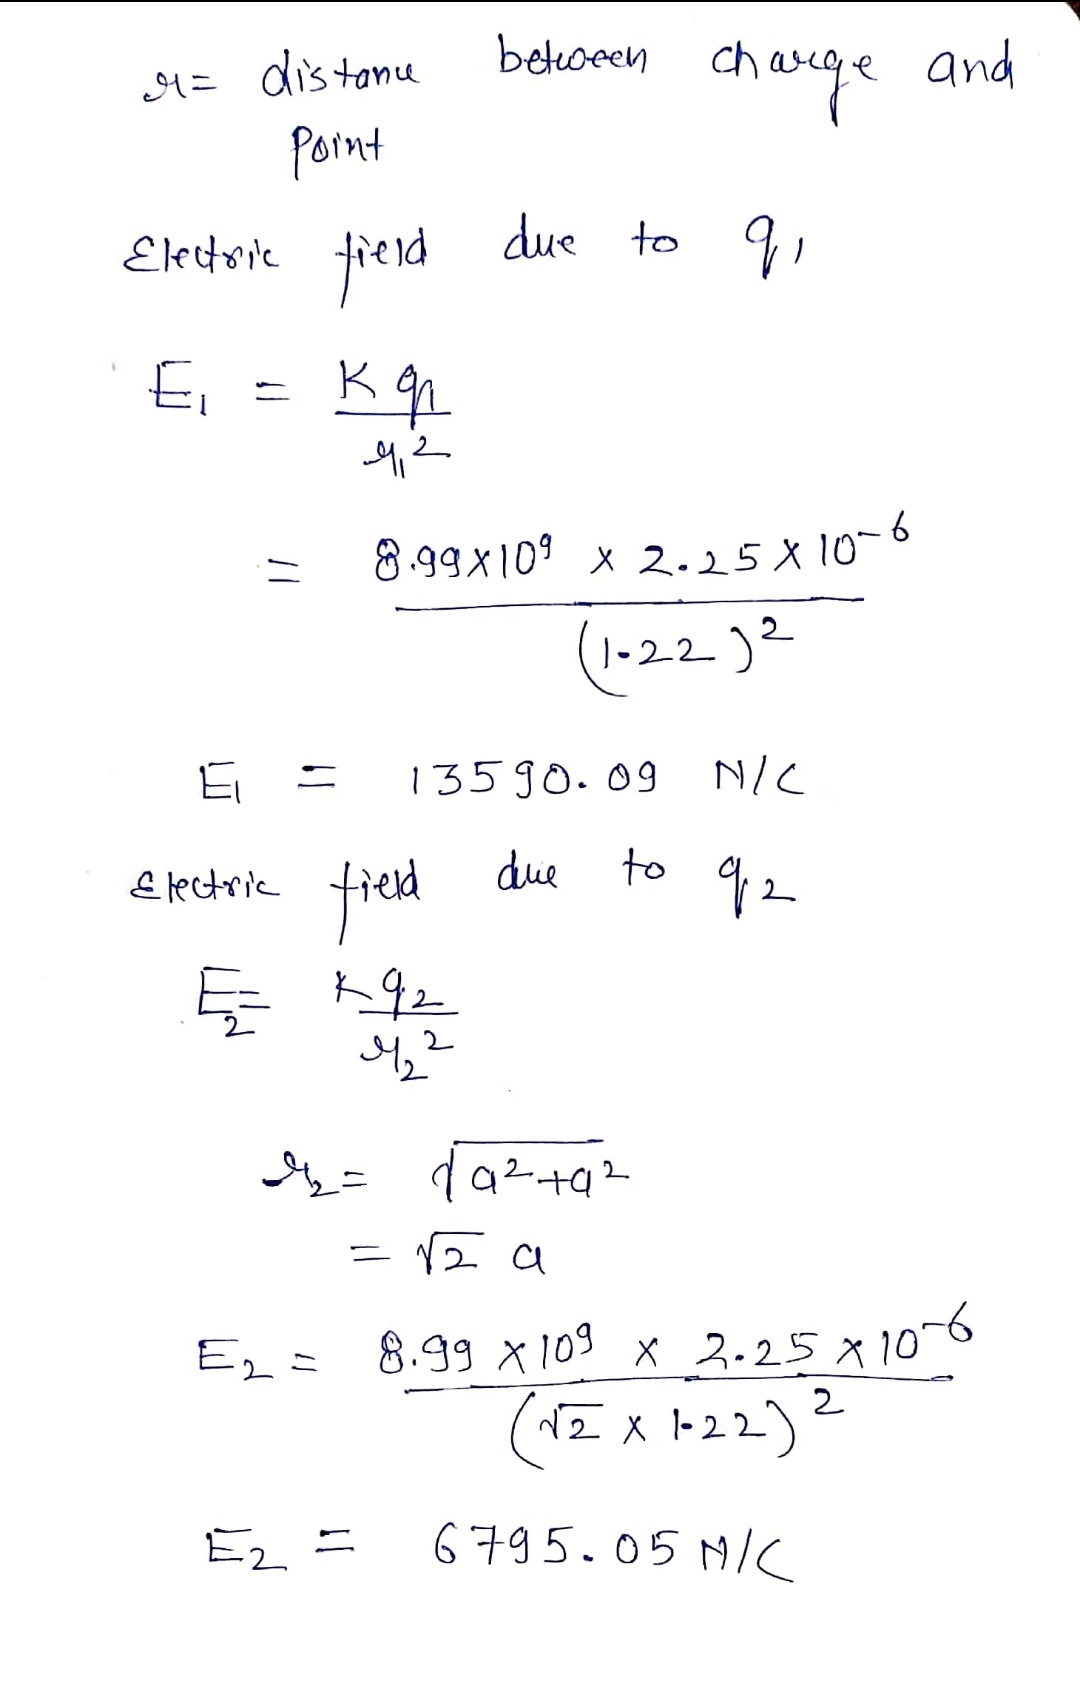 r = distance between charge and
point
Electric field due to q₁
E₁ = K q₁
r₁²
= 8.99×10⁹ × 2.25×10⁻⁶
(1.22)²
E₁ = 13590.09 N/C
Electric field due to q₂
E₂ = K q₂
r₂²
r₂ = √a²+a²
= √2 a
E₂ = 8.99×10⁹ × 2.25×10⁻⁶
(√2 × 1.22)²
E₂ = 6795.05 N/C